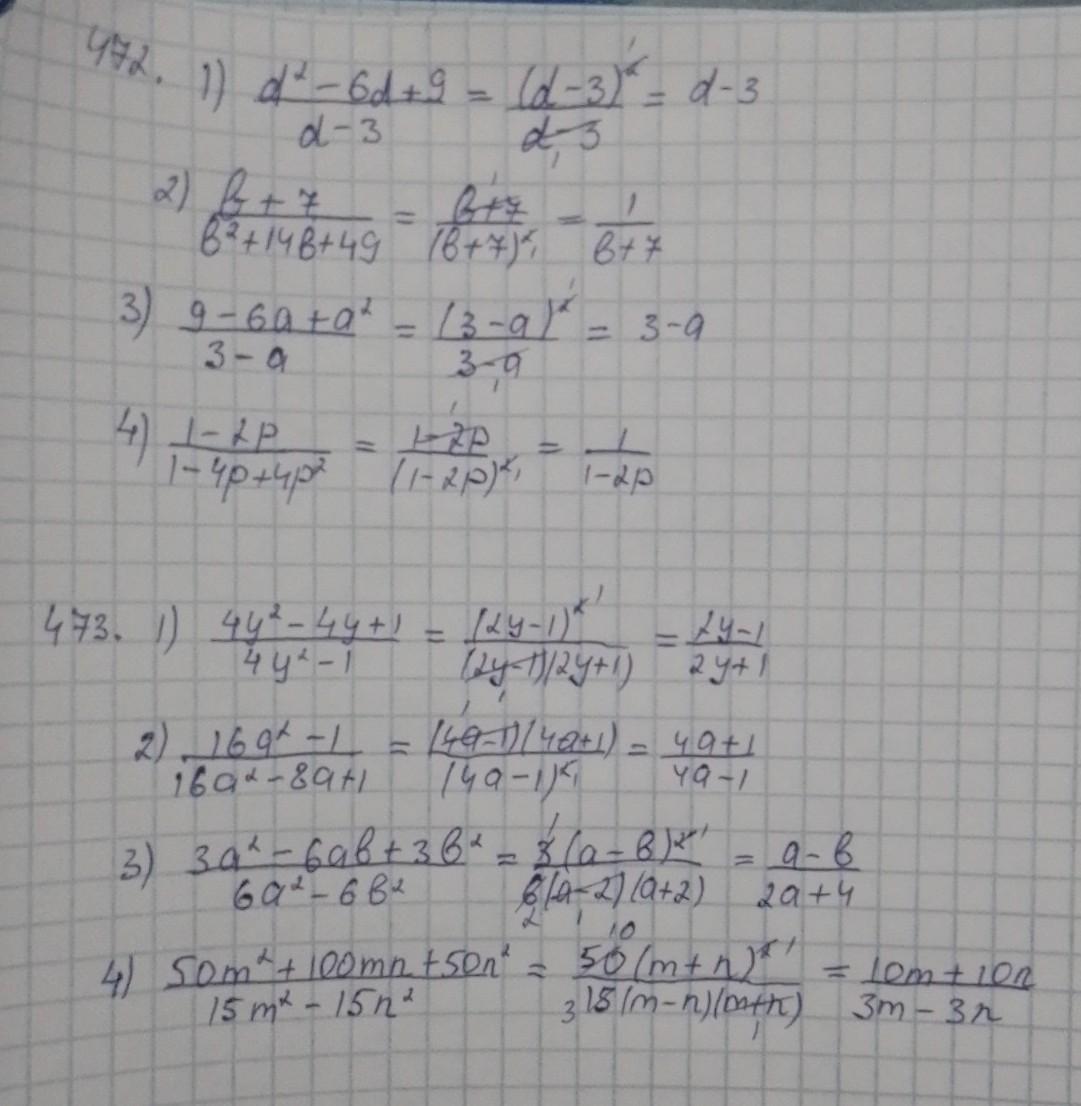 472. 1) (d² - 6d + 9)/(d - 3) = (d - 3)²/(d - 3) = d - 3
2) (в + 7)/(в² + 14в + 49) = (в + 7)/(в + 7)² = 1/(в + 7)
3) (9 - 6a + a²)/(3 - a) = (3 - a)²/(3 - a) = 3 - a
4) (1 - 2p)/(1 - 4p + 4p²) = (1 - 2p)/(1 - 2p)² = 1/(1 - 2p)
473. 1) (4y² - 4y + 1)/(4y² - 1) = (2y - 1)²/((2y - 1)(2y + 1)) = (2y - 1)/(2y + 1)
2) (16a² - 1)/(16a² - 8a + 1) = ((4a - 1)(4a + 1))/(4a - 1)² = (4a + 1)/(4a - 1)
3) (3a² - 6aв + 3в²)/(6a² - 6в²) = 3(a - в)²/(6(a - 2)(a + 2)) = (a - в)/(2a + 4)
4) (50m² + 100mn + 50n²)/(15m² - 15n²) = 50(m + n)²/(15(m - n)(m + n)) = (10m + 10n)/(3m - 3n)